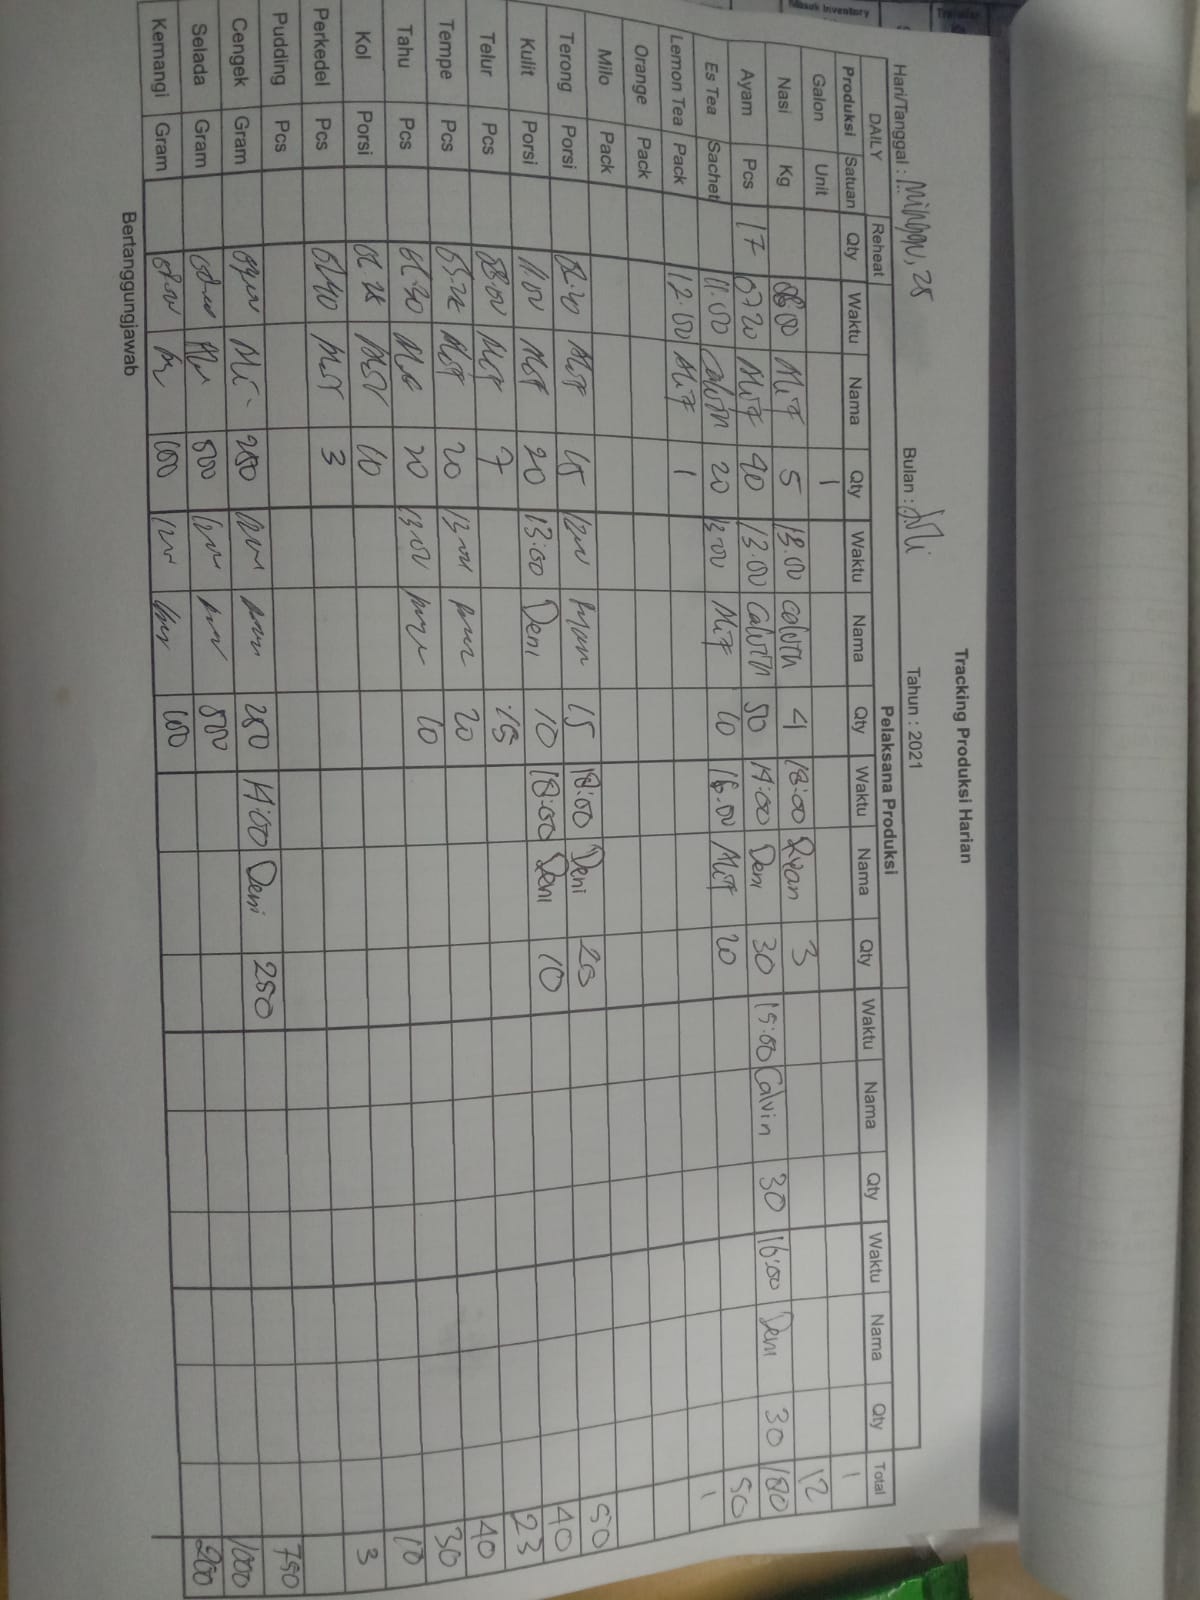 Masuk Inventory
Tracking Produksi Harian
Hari/Tanggal : Minggu, 25 Bulan : Juli Tahun : 2021
DAILY Reheat Pelaksana Produksi
Produksi Satuan Qty Waktu Nama Qty Waktu Nama Qty Waktu Nama Qty Waktu Nama Qty Waktu Nama Qty Total
Galon Unit 1 1
Nasi Kg 08.00 Mif 5 13.00 Calvin 4 18:00 Ryan 3 12
Ayam Pcs 17 07.20 Mif 40 13.00 Calvin 50 14:00 Deni 30 15:00 Calvin 30 16:00 Deni 30 180
Es Tea Sachet 11.00 Calvin 20 13.00 Mif 10 16.00 Mif 20 50
Lemon Tea Pack 12.00 Mif 1 1
Orange Pack
Milo Pack
Terong Porsi Mif 15 15 18:00 Deni 50
Kulit Porsi 11.00 Mif 20 13:00 Deni 10 18:00 Deni 10 40
Telur Pcs 08.00 Mif 7 23
Tempe Pcs Mif 20 13.00 20 40
Tahu Pcs 20 13.00 10 30
Kol Porsi 10 10
Perkedel Pcs Mif 3 3
Pudding Pcs
Cengek Gram 250 250 14:00 Deni 250 750
Selada Gram 500 500 1000
Kemangi Gram 100 100 200
Bertanggungjawab